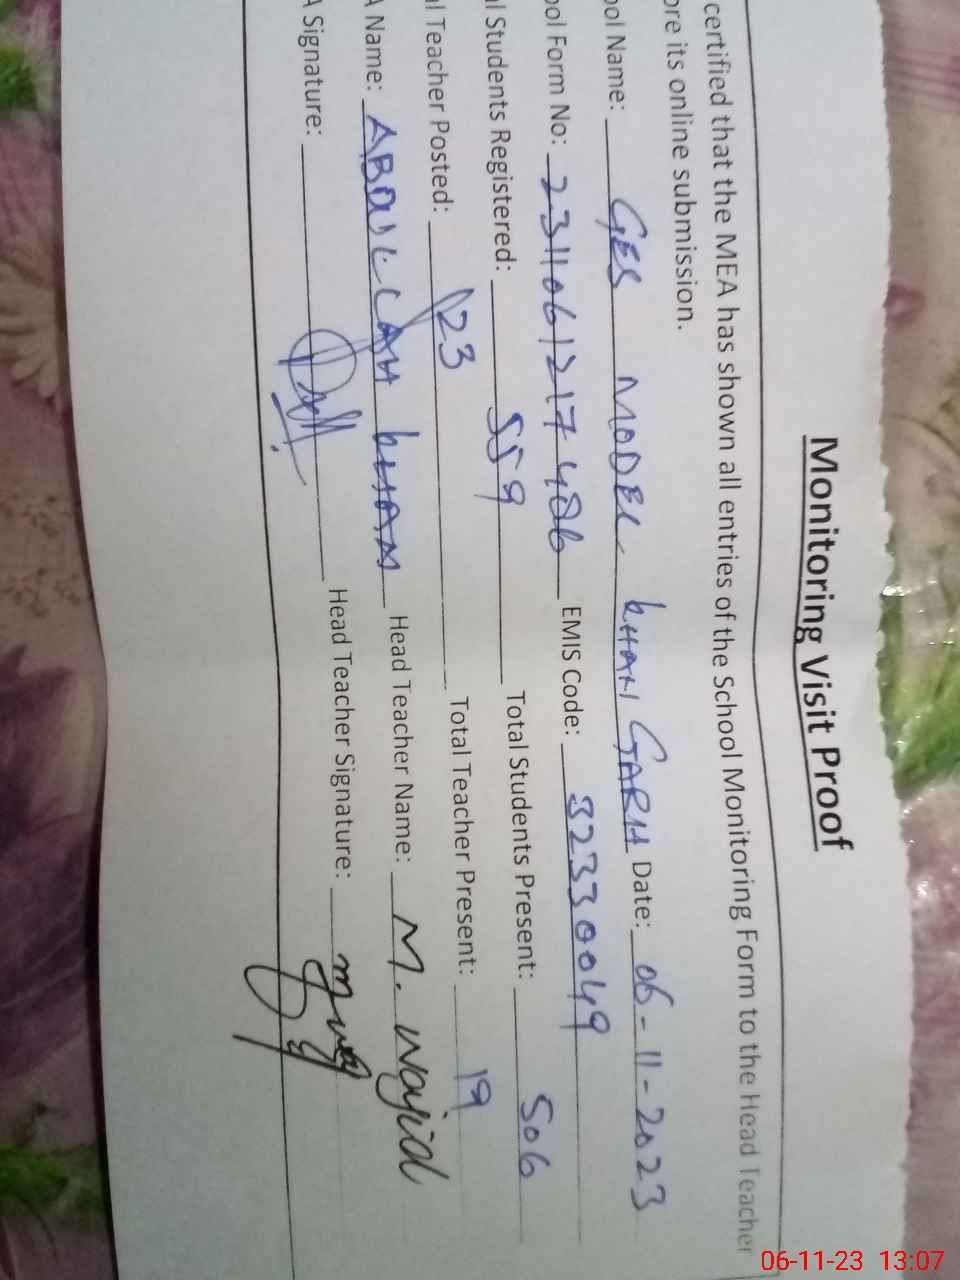 Monitoring Visit Proof
certified that the MEA has shown all entries of the School Monitoring Form to the Head Teacher
ore its online submission.
ool Name: GES MODEL KHAN GARH Date: 06-11-2023
ool Form No: 231106121748б EMIS Code: 32330049
l Students Registered: 559 Total Students Present: 506
al Teacher Posted: 23 Total Teacher Present: 19
A Name: ABDULLAH KHAN Head Teacher Name: M. Wajid
A Signature: Head Teacher Signature:
06-11-23 13:07